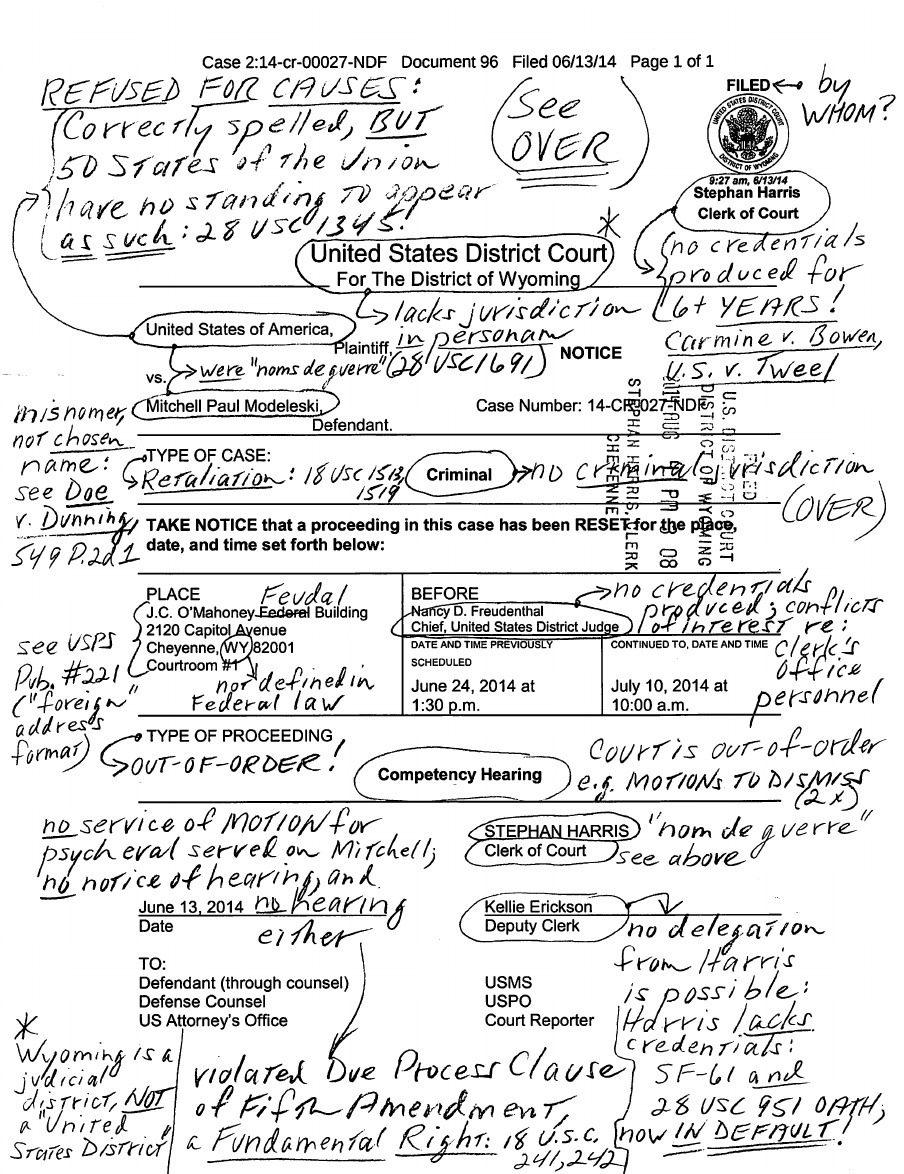 Case 2:14-cr-00027-NDF Document 96 Filed 06/13/14 Page 1 of 1
REFUSED FOR CAUSES:
Correctly spelled, BUT
50 States of the Union
have no standing to appear
as such: 28 USC 1345.
See
OVER
FILED
by
WHOM?
UNITED STATES DISTRICT COURT
DISTRICT OF WYOMING
9:27 am, 6/13/14
Stephan Harris
Clerk of Court
no credentials
produced for
6+ YEARS!
Carmine v. Bowen,
U.S. v. Tweel
*
United States District Court
For The District of Wyoming
lacks jurisdiction
in personam
United States of America,
Plaintiff,
were "noms de guerre" (28 USC 1691)
NOTICE
vs.
Mitchell Paul Modeleski,
Defendant.
Case Number: 14-CR-027-NDF
misnomer,
not chosen
name:
see Doe
v. Dunning,
549 P.2d 1
FILED
U.S. DISTRICT COURT
DISTRICT OF WYOMING
PM 3 08
STEPHAN HARRIS, CLERK
CHEYENNE
TYPE OF CASE:
Retaliation: 18 USC 1513,
1519
Criminal
no criminal jurisdiction
(OVER)
TAKE NOTICE that a proceeding in this case has been RESET for the place,
date, and time set forth below:
PLACE
Feudal
J.C. O'Mahoney Federal Building
2120 Capitol Avenue
Cheyenne, WY 82001
Courtroom #1
not defined in
Federal law
see USPS
Pub. #221
("foreign"
address
format)
BEFORE
Nancy D. Freudenthal
Chief, United States District Judge
no credentials
produced; conflicts
of interest re:
Clerk's
Office
personnel
DATE AND TIME PREVIOUSLY
SCHEDULED
June 24, 2014 at
1:30 p.m.
CONTINUED TO, DATE AND TIME
July 10, 2014 at
10:00 a.m.
TYPE OF PROCEEDING
OUT-OF-ORDER!
Competency Hearing
COURT IS OUT-OF-ORDER
e.g. MOTIONS TO DISMISS
(2x)
no service of MOTION for
psych eval served on Mitchell;
no notice of hearing, and
no hearing
either
STEPHAN HARRIS
Clerk of Court
"nom de guerre"
see above
June 13, 2014
Date
Kellie Erickson
Deputy Clerk
no delegation
from Harris
is possible:
Harris lacks
credentials:
SF-61 and
28 USC 951 OATH;
now IN DEFAULT!
TO:
Defendant (through counsel)
Defense Counsel
US Attorney's Office
USMS
USPO
Court Reporter
*
Wyoming is a
judicial
district, NOT
a "United
States District"
violated Due Process Clause
of Fifth Amendment,
a Fundamental Right: 18 U.S.C.
241, 242